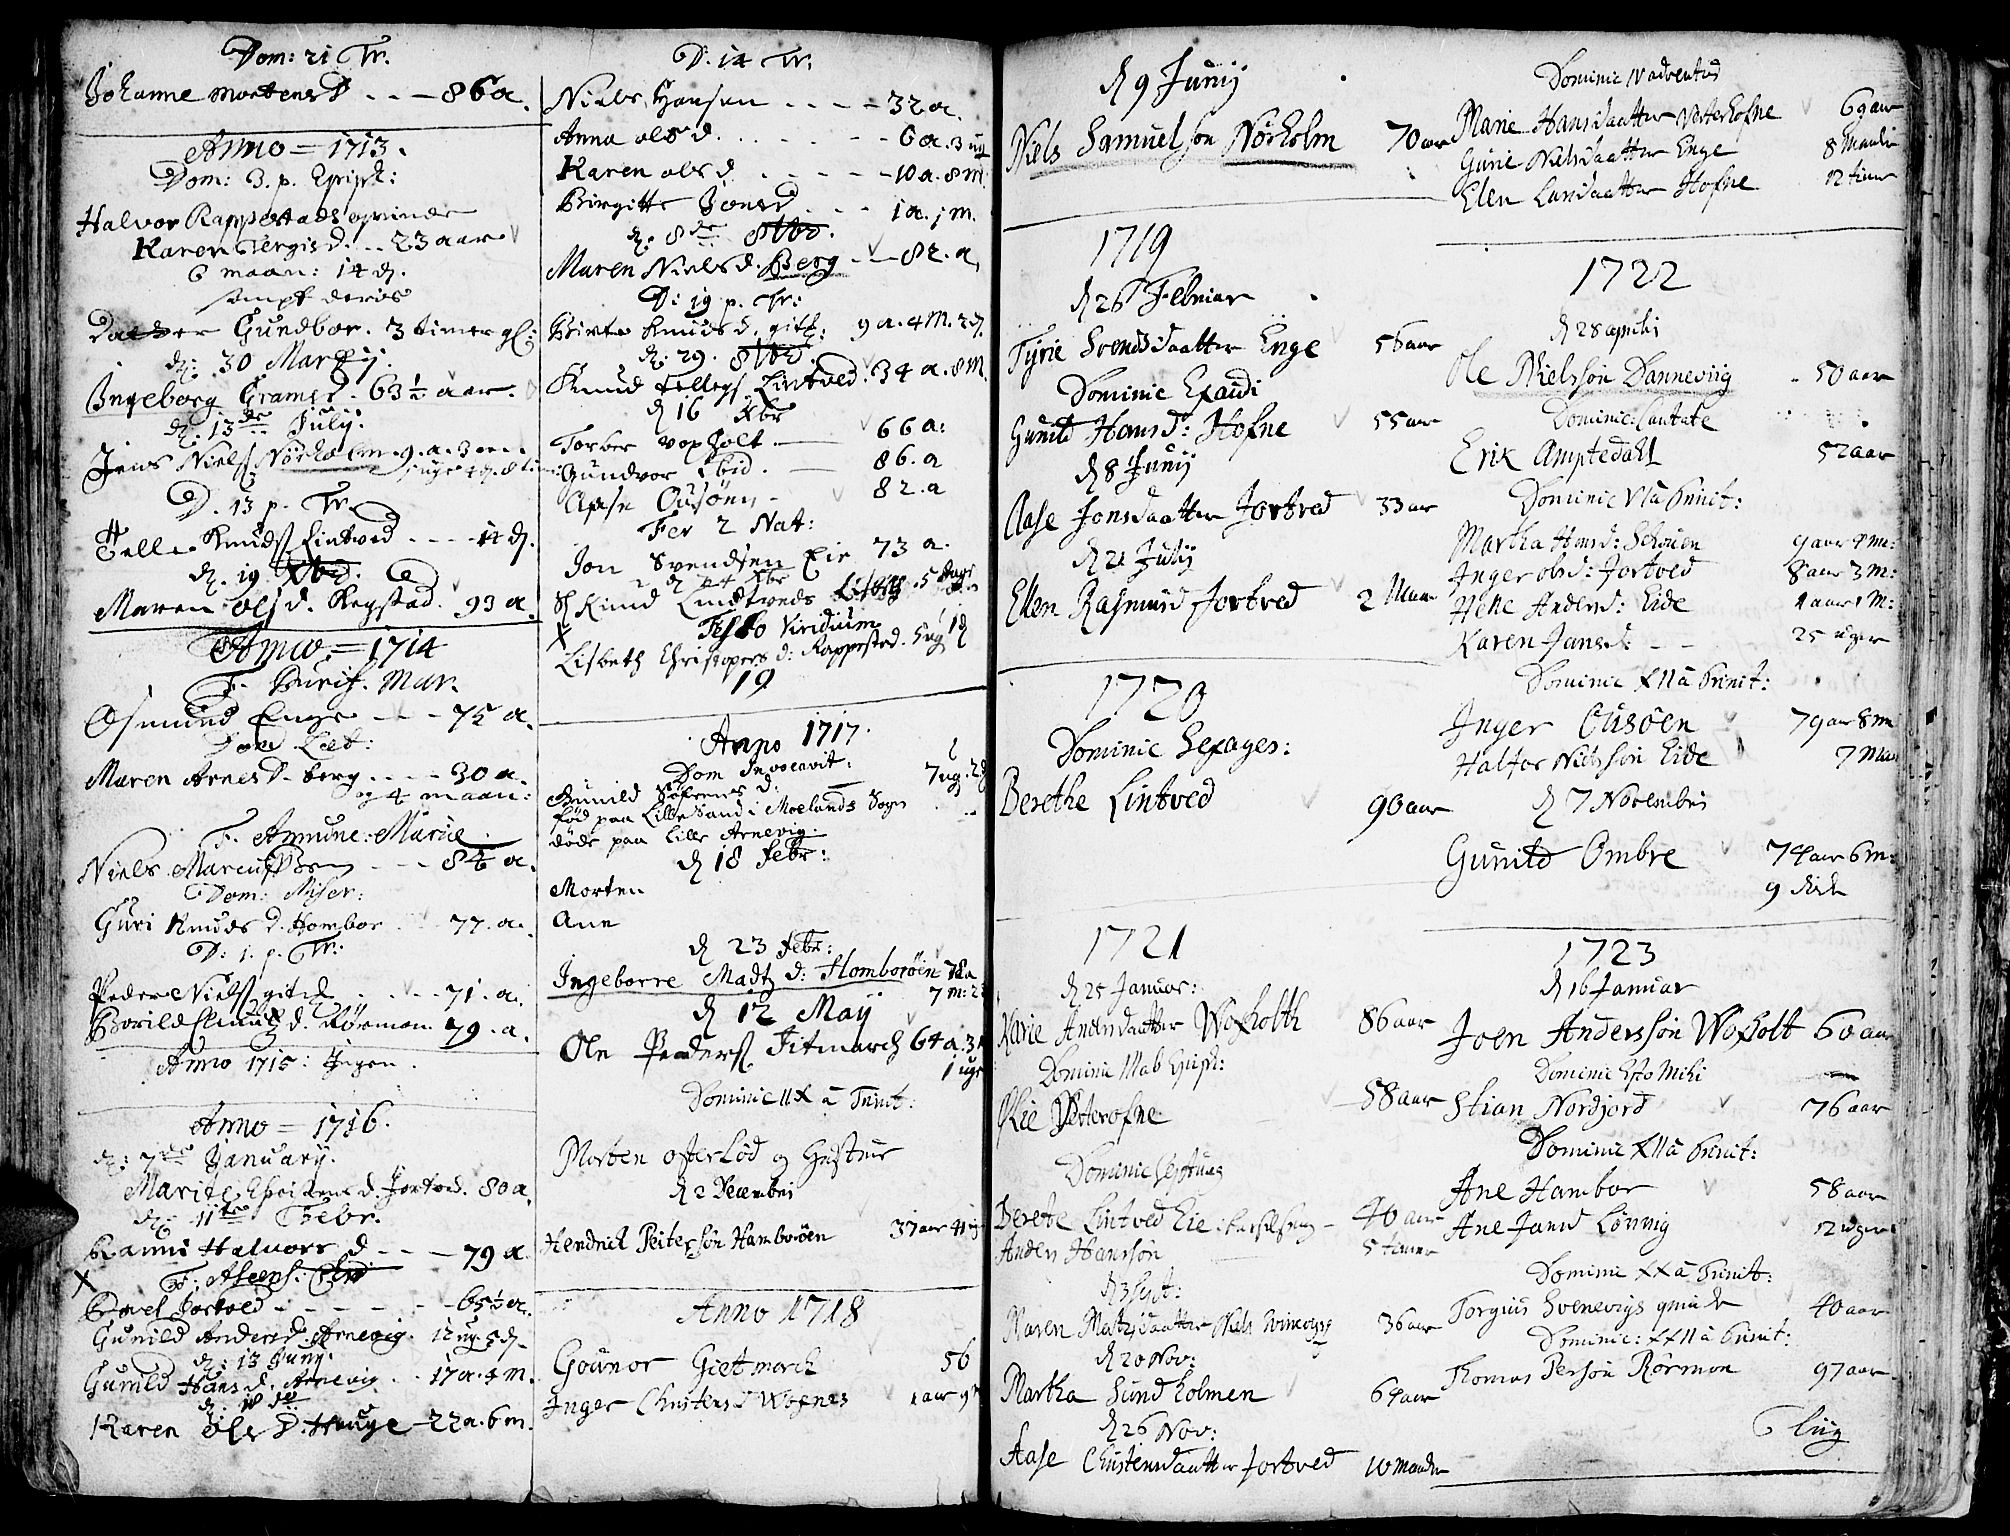 Dom: 21 Tr.
Johanne Mortens D - - - 86 a.
Anno = 1713.
Dom: 3. p. Epiph:
Halvor Rappestads qvinde
Karen Tergis d. - - 23 aar
6 maan: 14 d.
sampt deris
Gundbor. 3 timer gl:
d: 30 Martij.
Ingeborg Grams d. 63½ aar.
d: 13de July.
Jens Niels Nörholm. 9. a. 3
D. 13 p. Tr.
Telle Knuds Lintved - - - 14 d.
d. 19. Xbr.
Maren Ols d. Regstad. 93 a.
Anno = 1714
F. Purif. Mar.
Osmund Enge - - - 75 a.
Dom Læt:
Maren Arnes D. berg - - - 30 a.
og 4 maan:
F. Anunc: Mariæ
Niels Marcussen - - - 84 a.
Dom: Miser:
Guri Knuds d. Hombor 77. a.
D: 1. p. Tr:
Peder Niels - - 71. a.
Borild d. Rörmon. 79. a.
Anno 1715: Ingen.
Anno = 1716.
d: 7de January.
Marite Christens d. Jortved. 80 a.
d: 11te Febr.
Ranni Halvors d - - - 79 a
X
F: Ascens: Chr
Povel Jortved - - - - 65½ a.
Gunild Anders d. Arnevig. 12 ug. 5 d.
d: 13 Juny.
Gunild Hans d. Arnevig - - 17 a. 4 m.
Karen Ols D. Hauge - 22 a. 6 m.
D. 14 Tr.
Niels Hansen - - - - 32 a.
Anna Ols d. - - - - 6 a. 3 ug
Karen Ols d. - - - - 10 a. 8 m.
Birgitte Jens d - - - 1 a. j m.
d: 8de 8br.
Maren Niels d. Berg - - 82. a.
D: 19 p. Tr:
Birte Knuds d. 9 a. 4 M. 2 d.
d: 29. 8br.
Knud Tellegs Lintved. 34 a. 8 M.
d 16 Xbr
Torber Voxholt - 66 a:
Gundvor ibid. - 86. a
Aase Ousöen - 82. a
Fer 2 Nat:
Jon Svendsen Eie 73 a.
d 24 Xbr
Knud Lindtveds
X
Festo Viridium
Lisbeth Christopers d: Rappestad. 5 ug 1 d
19
Anno 1717.
Dom Invocavit:
Gunild Sörens d: 7 ug. 2 d
föd paa Lillesand i Moelands Sogn
döde paa Lille Arnevig.
d 18 Febr:
Morten
Ane
d 23 Febr:
Ingeborre Madtz d: Homboröen 78 a
7 m: 2
d 12 May
Ole Peders Fitmarch 64 a. 3
1 uge
Dominic IIX a Trinit:
Morten Osterlöd og Hustrue
d 2 Decembri
Hendrich Peitersön Hamboröen 37 aar 41 ug
Anno 1718
Gounor Gietmarch 56
Inger Christens d Wognes 1 aar 9
d 9 Junij
Niels Samuelsön Nörholm 70 aar
1719
d 26 Februar
Tyrie Svendsdaatter Enge 56 aar
Dominic Exaudi
Gunild Hans d: Hofne 55 aar
d 8 Junij
Aase Jonsdaatter Jortved 33 aar
d 21 Julij
Ellen Rasmus d Jortved 2 Maan
1720
Dominic Sexages:
Berethe Lintved 90 aar
1721
d 25 Januar:
Karie Andersdaatter Woxholth 86 aar
Dominic III ab Epiph:
Olie Westerofne 58 aar
Dominic Septuag
Berete Lintved Eie - 40 aar
Anders Hanssön 5 timer
d 3 Sept:
Maren Matzdaatter 36 aar
d 20 Nov:
Martha Sundholmen 64 aar
d 26 Nov:
Aase Christensdaatter Jortved 10 Maaner
Dominic IV adventus
Marie Hansdaatter Vesterhofne 69 aar
Gurie Nielsdaatter Enge 8 Maaner
Ellen Larsdaatter Hofne 12 timer
1722
d 28 aprili
Ole Nielssön Dannevig 50 aar
Dominic: Cantate
Erik Amptedahl 52 aar
Dominic VI a Trinit:
Martha Hans d: Skouen 9 aar 4 m:
Inger Ols d: Jortved 8 aar 3 m:
Helle Anders d: Eide 1 aar 1 M:
Karen Jans d: - - 25 uger
Dominic XII a Trinit:
Inger Ousöen 79 aar 8 m
Halfor Nielssön Eide 7 Maan
d 7 Novembri
Gunild Ombre 74 aar 6 m:
1723
d 16 Januar
Joen Anderssön Woxholt 60 aar
Dominic Esto Mihi
Stian Nordjord 76 aar
Dominic XII a Trinit:
Ane Hambor 58 aar
Ane Jans d Lönnig 12 uger
Dominic XX a Trinit:
Torguus Svenevigs qvinde 40 aar
Dominic: XXII a Trinit:
Thomas Persön Rörmon 97 aar